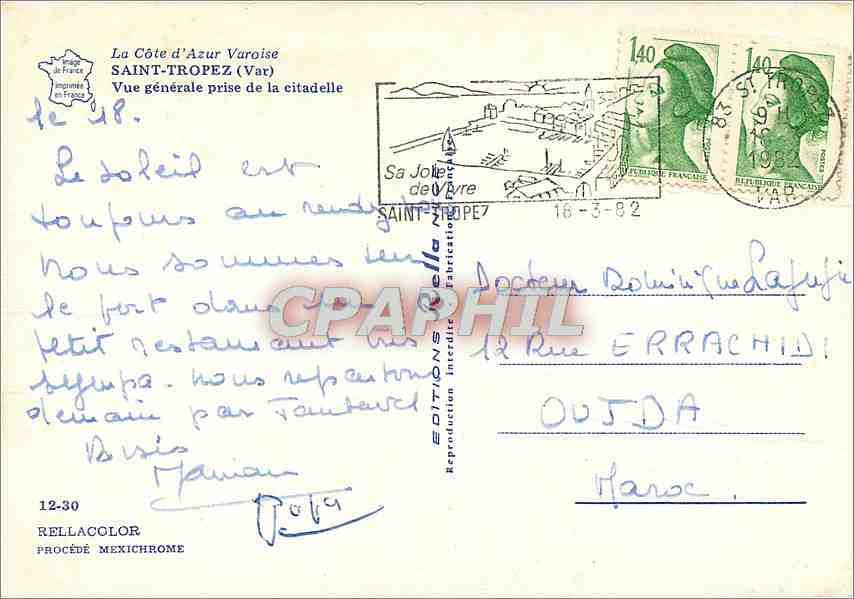 Image
de France
Imprimée
en France
La Côte d'Azur Varoise
SAINT-TROPEZ (Var)
Vue générale prise de la citadelle
le 18.
Le soleil est
toujours au rendez-vous
Nous sommes sur
le port dans un
petit restaurant très
sympa. Nous repartons
demain par Tautavel
Bisés
Maman
Papa
12-30
RELLACOLOR
PROCÉDÉ MEXICHROME
EDITIONS Rella NICE
Reproduction interdite Fabrication Française
Sa Joie
de Vivre
SAINT-TROPEZ 18-3-82
1,40
RÉPUBLIQUE FRANÇAISE
POSTES
1,40
RÉPUBLIQUE FRANÇAISE
POSTES
83 ST TROPEZ
1982
VAR
Docteur Dominique
12 Rue ERRACHIDI
OUJDA
Maroc.
CPAPHIL